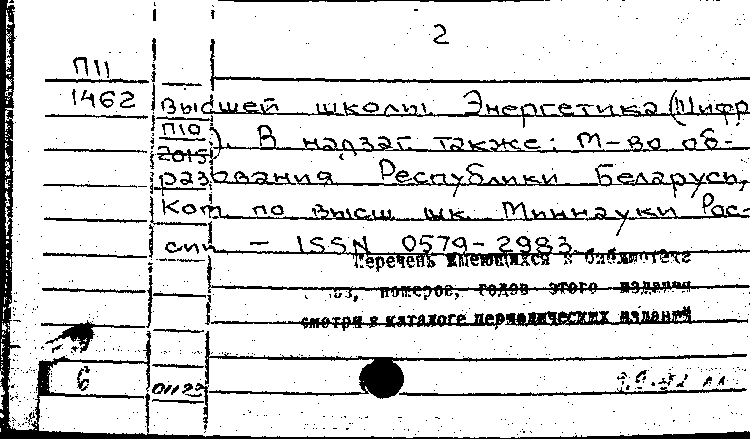 2
П11
1462 высшей школы. Энергетика (Шифр
П10 ). В надзаг. также: М-во об-
2015
разования Республики Беларусь,
Ком. по высш. шк. Миннауки Рос-
сии. — ISSN 0579-2983.
Перечень имеющихся в библиотеке
номеров, годов этого издания
смотри в каталоге периодических изданий
6